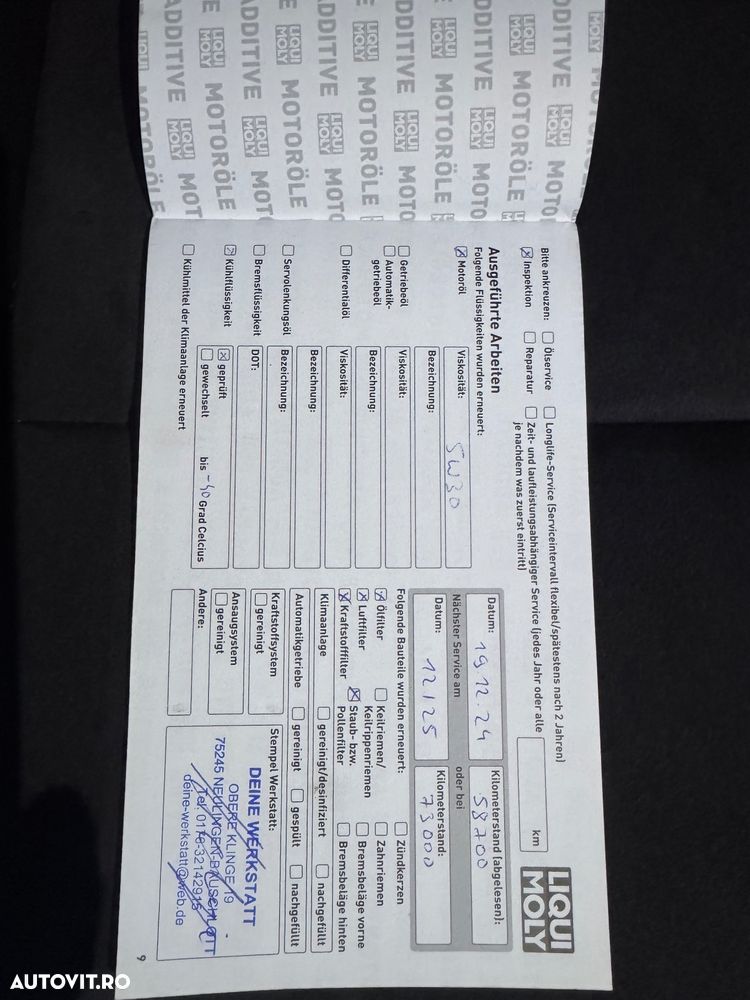 LIQUI MOLY MOTORÖLE ADDITIVE
LIQUI MOLY
Bitte ankreuzen:
Ölservice
Longlife-Service (Serviceintervall flexibel/spätestens nach 2 Jahren)
Inspektion
Reparatur
Zeit- und laufleistungsabhängiger Service (jedes Jahr oder alle
km
je nachdem was zuerst eintritt)
Ausgeführte Arbeiten
Folgende Flüssigkeiten wurden erneuert:
Motoröl
Viskosität: 5W30
Bezeichnung:
Getriebeöl
Viskosität:
Automatik-
getriebeöl
Bezeichnung:
Differentialöl
Viskosität:
Bezeichnung:
Servolenkungsöl
Bezeichnung:
Bremsflüssigkeit
DOT:
Kühlflüssigkeit
geprüft
gewechselt
bis -40 Grad Celcius
Kühlmittel der Klimaanlage erneuert
Datum: 19.12.24
Kilometerstand (abgelesen): 58700
Nächster Service am
oder bei
Datum: 12/25
Kilometerstand: 73000
Folgende Bauteile wurden erneuert:
Ölfilter
Keilriemen/
Keilrippenriemen
Zündkerzen
Zahnriemen
Luftfilter
Staub- bzw.
Pollenfilter
Bremsbeläge vorne
Kraftstofffilter
Bremsbeläge hinten
Klimaanlage
gereinigt/desinfiziert
nachgefüllt
Automatikgetriebe
gereinigt
gespült
nachgefüllt
Kraftstoffsystem
gereinigt
Ansaugsystem
gereinigt
Andere:
Stempel Werkstatt:
DEINE WERKSTATT
OBERE KLINGE 19
75245 NEULINGEN-BAUSCHLOTT
Tel. 0176-32142915
deine-werkstatt@web.de
9
AUTOVIT.RO